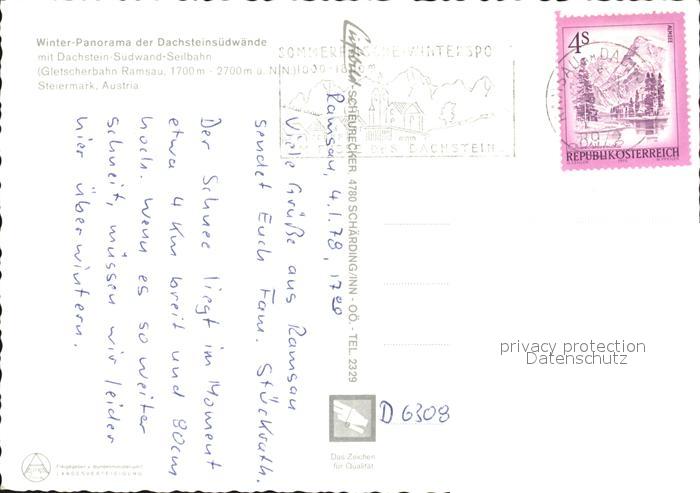 Winter-Panorama der Dachsteinsüdwände
mit Dachstein-Südwand-Seilbahn
(Gletscherbahn Ramsau, 1700m - 2700m ü. N.N.)
Steiermark, Austria
SOMMERFRISCHE-WINTERSPO
DACHSTEIN
4S
ALMSEE
REPUBLIK ÖSTERREICH
Luftbild-SCHEURECKER, 4780 SCHÄRDING/INN - OÖ. - TEL. 2329
Ramsau, 4.1.78, 1700
Viele Grüße aus Ramsau
sendet Euch Fam. Stückrath.
Der Schnee liegt im Moment
etwa 4 Km breit und 80cm
hoch. Wenn es so weiter
schneit, müssen wir leider
hier überwintern.
privacy protection
Datenschutz
D 6308
Das Zeichen
für Qualität
Freigegeben v. Bundesministerium f.
LANDESVERTEIDIGUNG